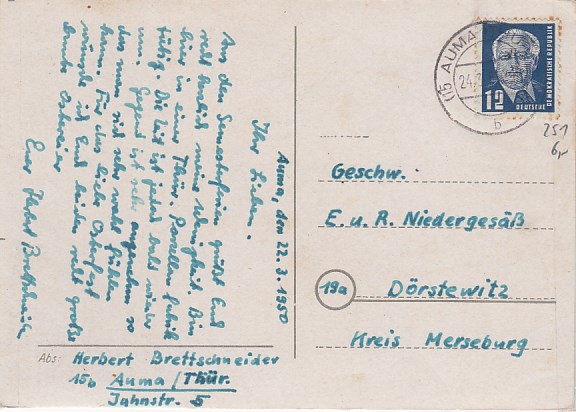 Auma, den 22.3.1950
Ihr Lieben.
An den Semesterferien grüßt Euch
recht herzlich meine Wenigkeit. Bin
hier in einer Thür. Porzellanfabrik
tätig. Die Zeit ist jedoch bald wieder
um. Gegend ist sehr angenehm so
das man sich sehr wohl fühlen
kann. Für das liebe Osterfest
wünsche ich Euch beiden recht große
bunte Ostereier
Euer Herbert Brettschneider
Abs: Herbert Brettschneider
15b Auma/Thür.
Jahnstr. 5
(15 AUMA
24.3
b
12
DEUTSCHE
DEMOKRATISCHE REPUBLIK
251
Geschw.
E. u. R. Niedergesäß
19a Dörstewitz
Kreis Merseburg